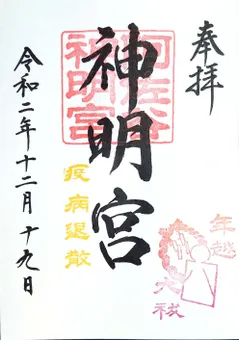 奉拝
神明宮
阿佐谷神明宮
疫病退散
年越
大祓
令和二年十二月十九日